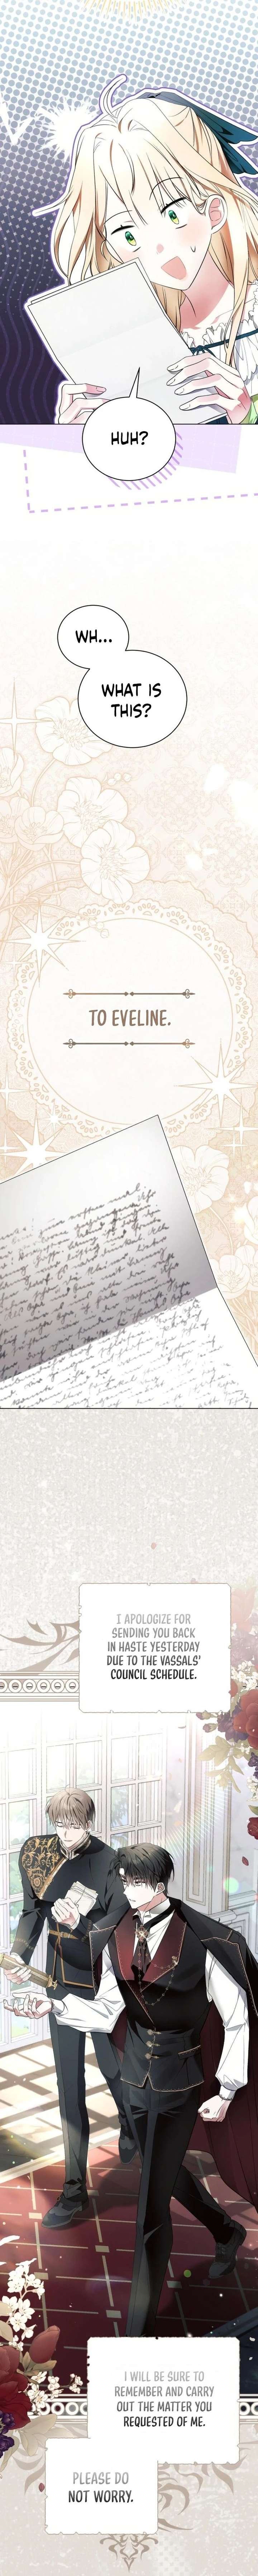 HUH?
WH...
WHAT IS
THIS?
TO EVELINE.
I APOLOGIZE FOR
SENDING YOU BACK
IN HASTE YESTERDAY
DUE TO THE VASSALS'
COUNCIL SCHEDULE.
I WILL BE SURE TO
REMEMBER AND CARRY
OUT THE MATTER YOU
REQUESTED OF ME.
PLEASE DO
NOT WORRY.